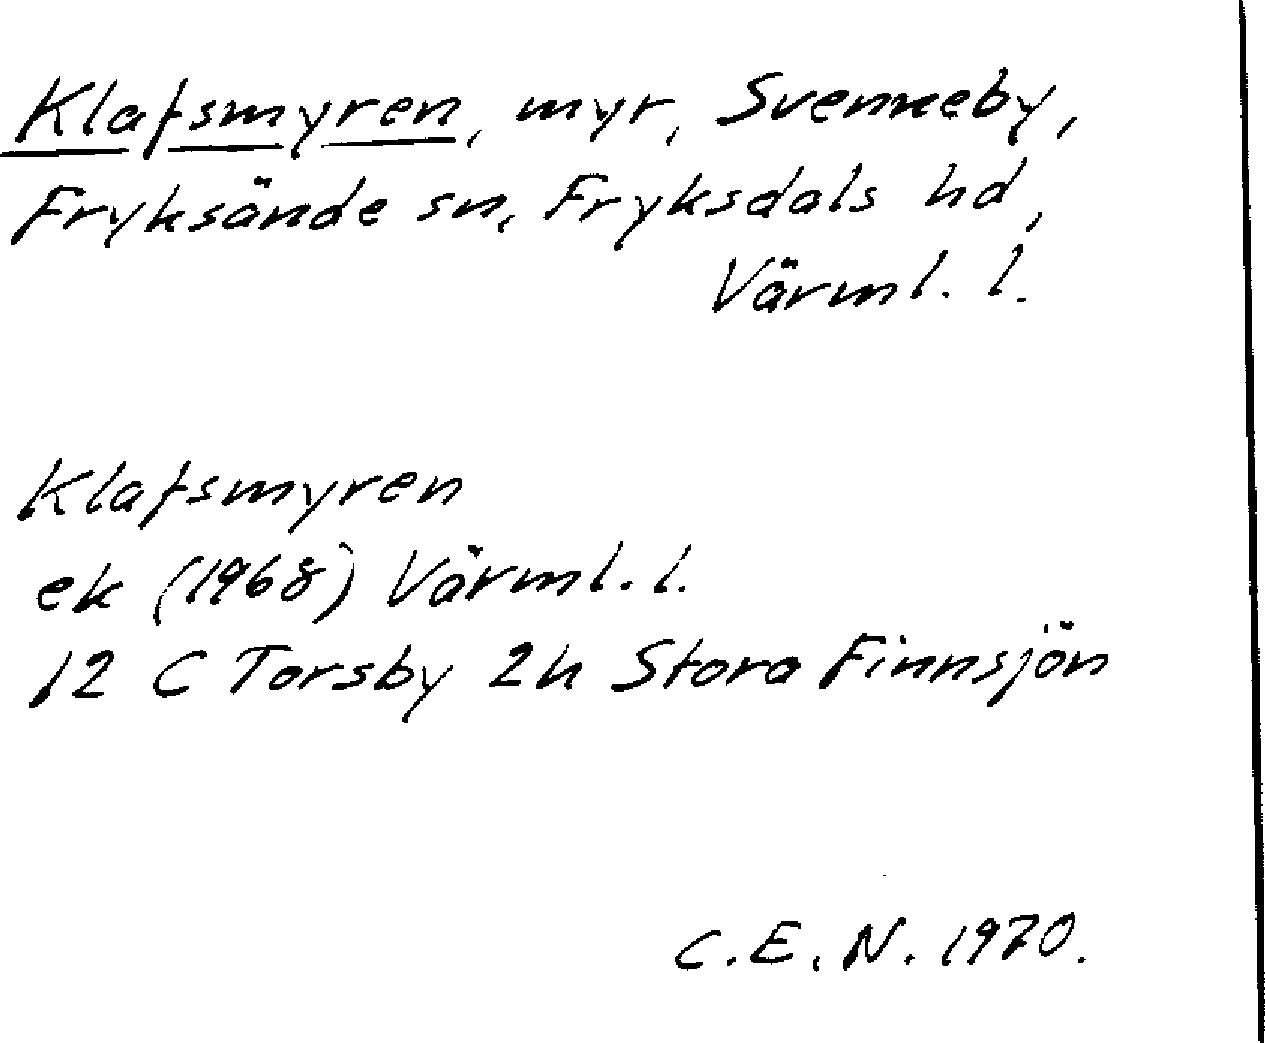 Klafsmyren, myr, Svenneby,
Fryksände sn, Fryksdals hd,
Värml. l.
Klafsmyren
ek (1968) Värml. l.
12 C Torsby 2h Stora Finnsjön
C.E.N. 1970.